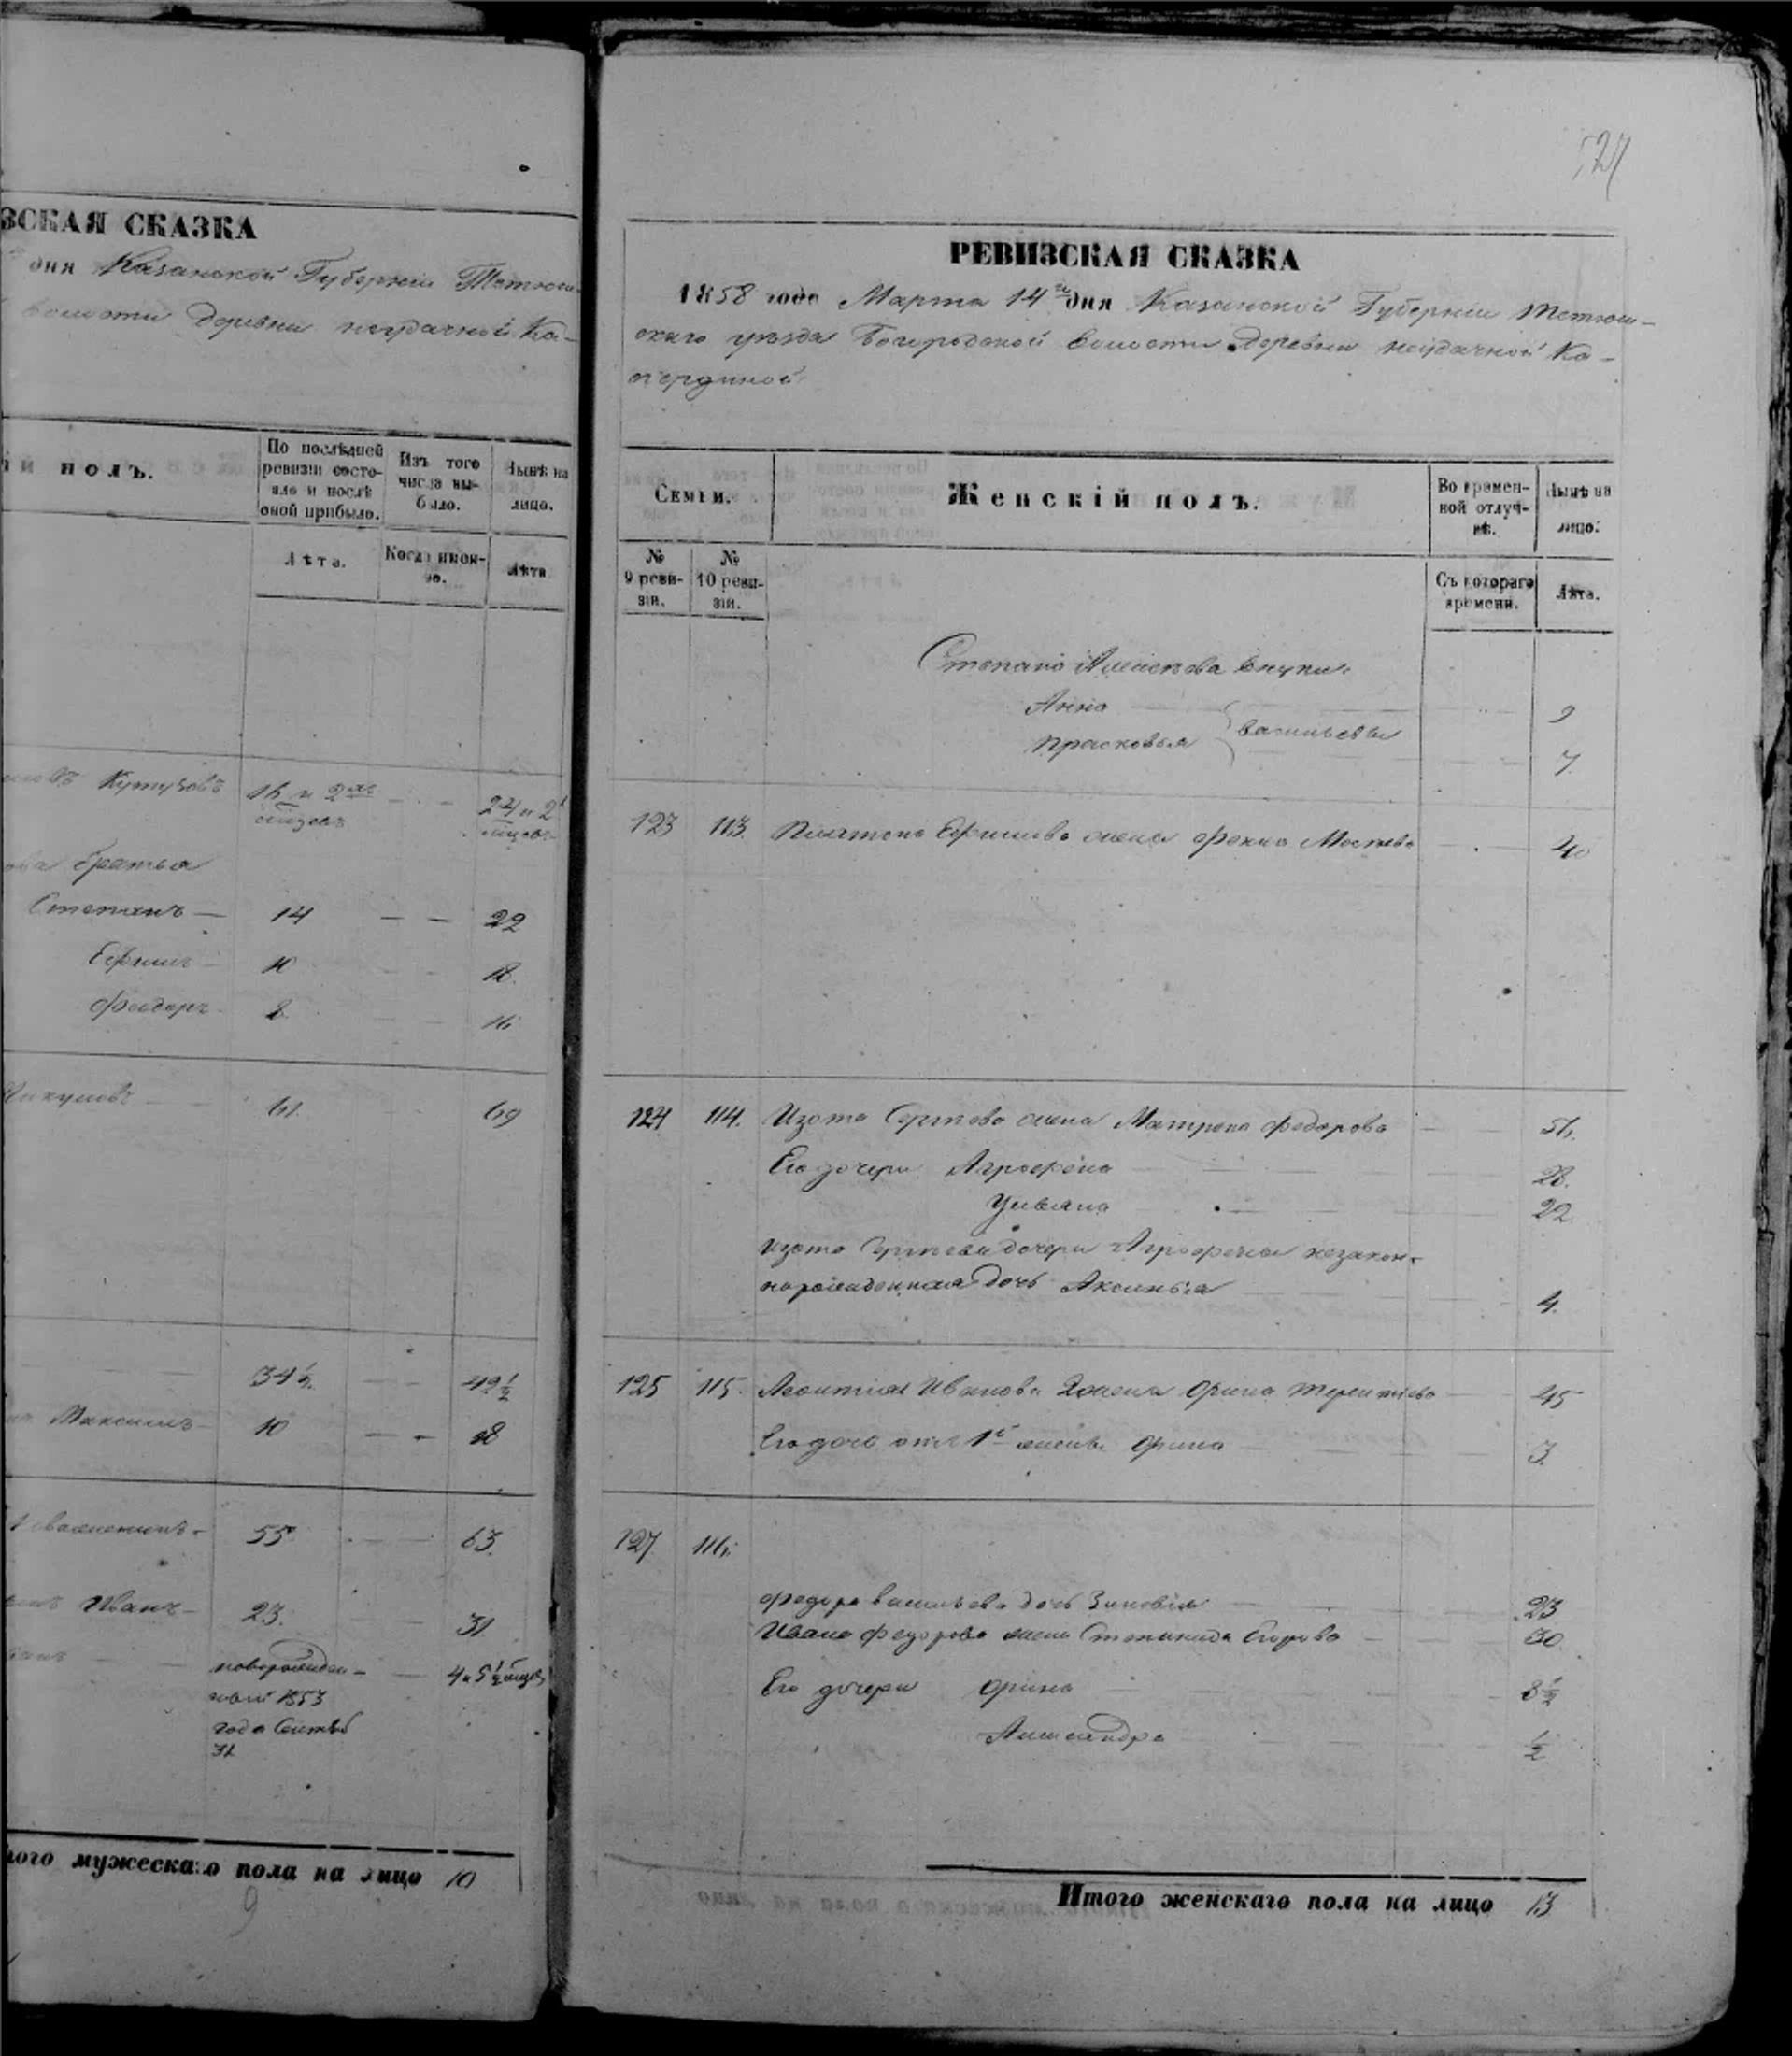 ЗСКАЯ СКАЗКА
дня Казанской Губерніи Тетюш-
волости деревни неудачной Ка-
ій полъ.
По послѣдней ревизіи состо-
яло и послѣ оной прибыло.
Изъ того числа вы-
было.
Нынѣ на лицо.
Лѣта.
Когда имен-
но.
Лѣта
Кутузовъ 16 и 2хъ 24 и 2
братья
Степанъ — 14 — — 22
Ефимъ 10 18.
Федоръ 8 16
61. 69
34½. 42½
Максимъ 10 — — 18
55 63.
Иванъ — 23. 31
новорожден-
ный 1853 4 и 5½
года
31
ого мужескаго пола на лицо 10
9
РЕВИЗСКАЯ СКАЗКА
1858 года Марта 14го дня Казанской Губерніи Тетюш-
скаго уѣзда Богородской волости деревни неудачной Ка-
Семьи.
Женскій полъ.
Во времен-
ной отлуч-
кѣ.
Нынѣ на
лицо.
№
9 реви-
зіи.
№
10 реви-
зіи.
Съ котораго
времени.
Лѣта.
Степана Алексѣева внучки.
Анна 9
Васильевы
Прасковья 7.
123 113. Платона Ефимова жена Фекла 40
124 114. Изота Сергѣева жена Матрена Федорова 56.
Его дочери Агрофена 28.
Ульяна 22
Изота Сергѣева дочери Агрофены незакон-
норожденная дочь Аксинья 4.
125 115. Леонтія Иванова 2 жена Орина Терентьева 45
Его дочь отъ 1й жены Орина 3.
127 116.
Федора Васильева дочь Зиновія 23
Ивана Федорова жена Степанида Егорова 30
Его дочери Орина 8½
Александра ½
Итого женскаго пола на лицо 13